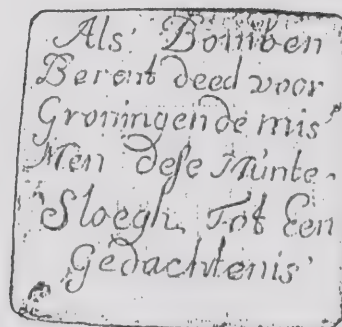 Als' Bomben
Berent deed voor
Groningen de mis
Men dese Munte.
Sloegh Tot Een
Gedachtenis'